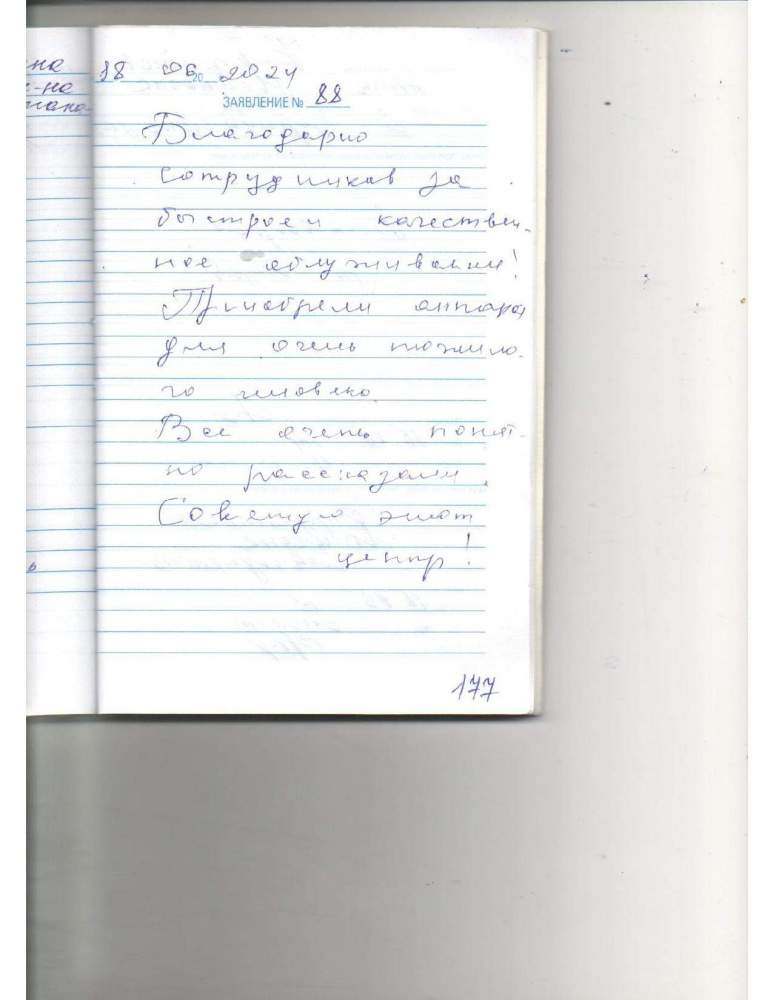 на
18 06 20 2024
-на
ЗАЯВЛЕНИЕ № 88
Благодарю
сотрудников за
быстрое и качествен-
ное обслуживание!
Приобрели аппарат
для очень пожило-
го человека.
Все очень понят-
но рассказали.
Советую этот
центр!
177